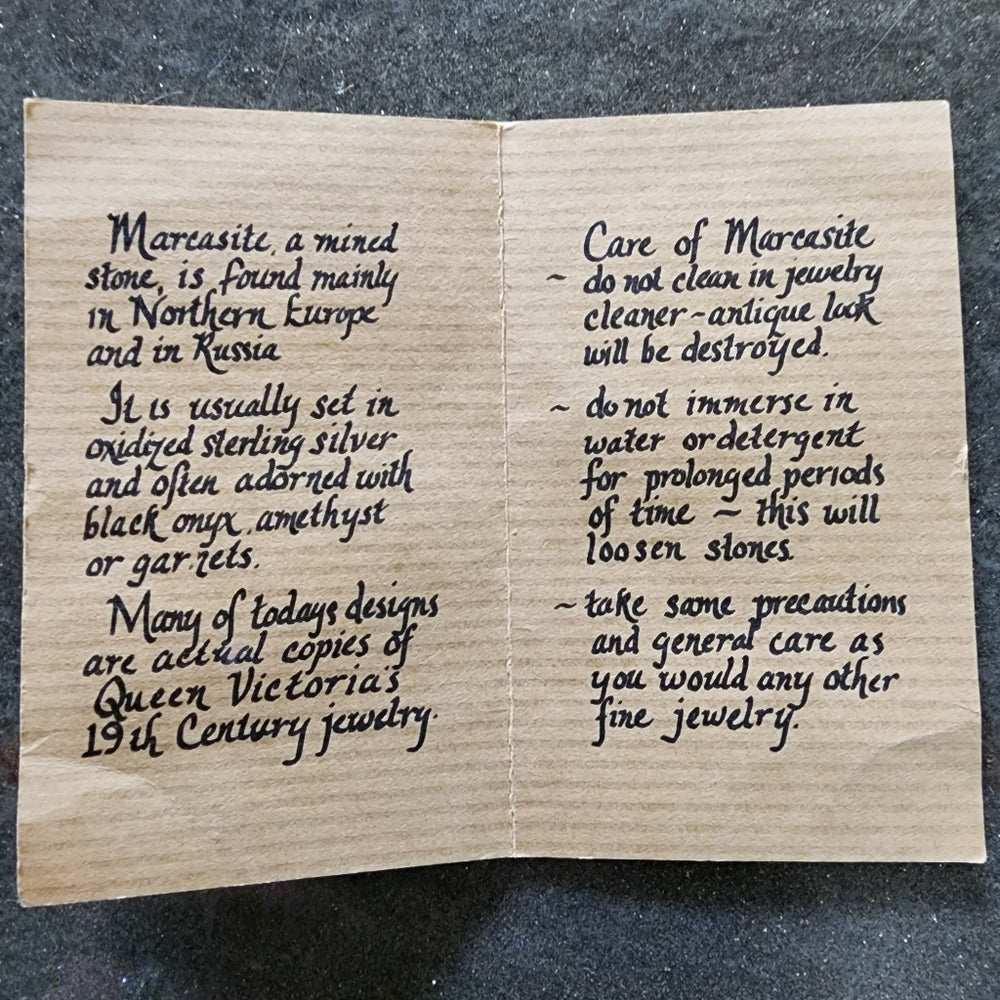 Marcasite, a mined
stone, is found mainly
in Northern Europe
and in Russia
It is usually set in
oxidized sterling silver
and often adorned with
black onyx, amethyst
or garnets.
Many of todays designs
are actual copies of
Queen Victoria's
19th Century jewelry.
Care of Marcasite
~ do not clean in jewelry
cleaner ~ antique look
will be destroyed.
~ do not immerse in
water or detergent
for prolonged periods
of time ~ this will
loosen stones.
~ take same precautions
and general care as
you would any other
fine jewelry.